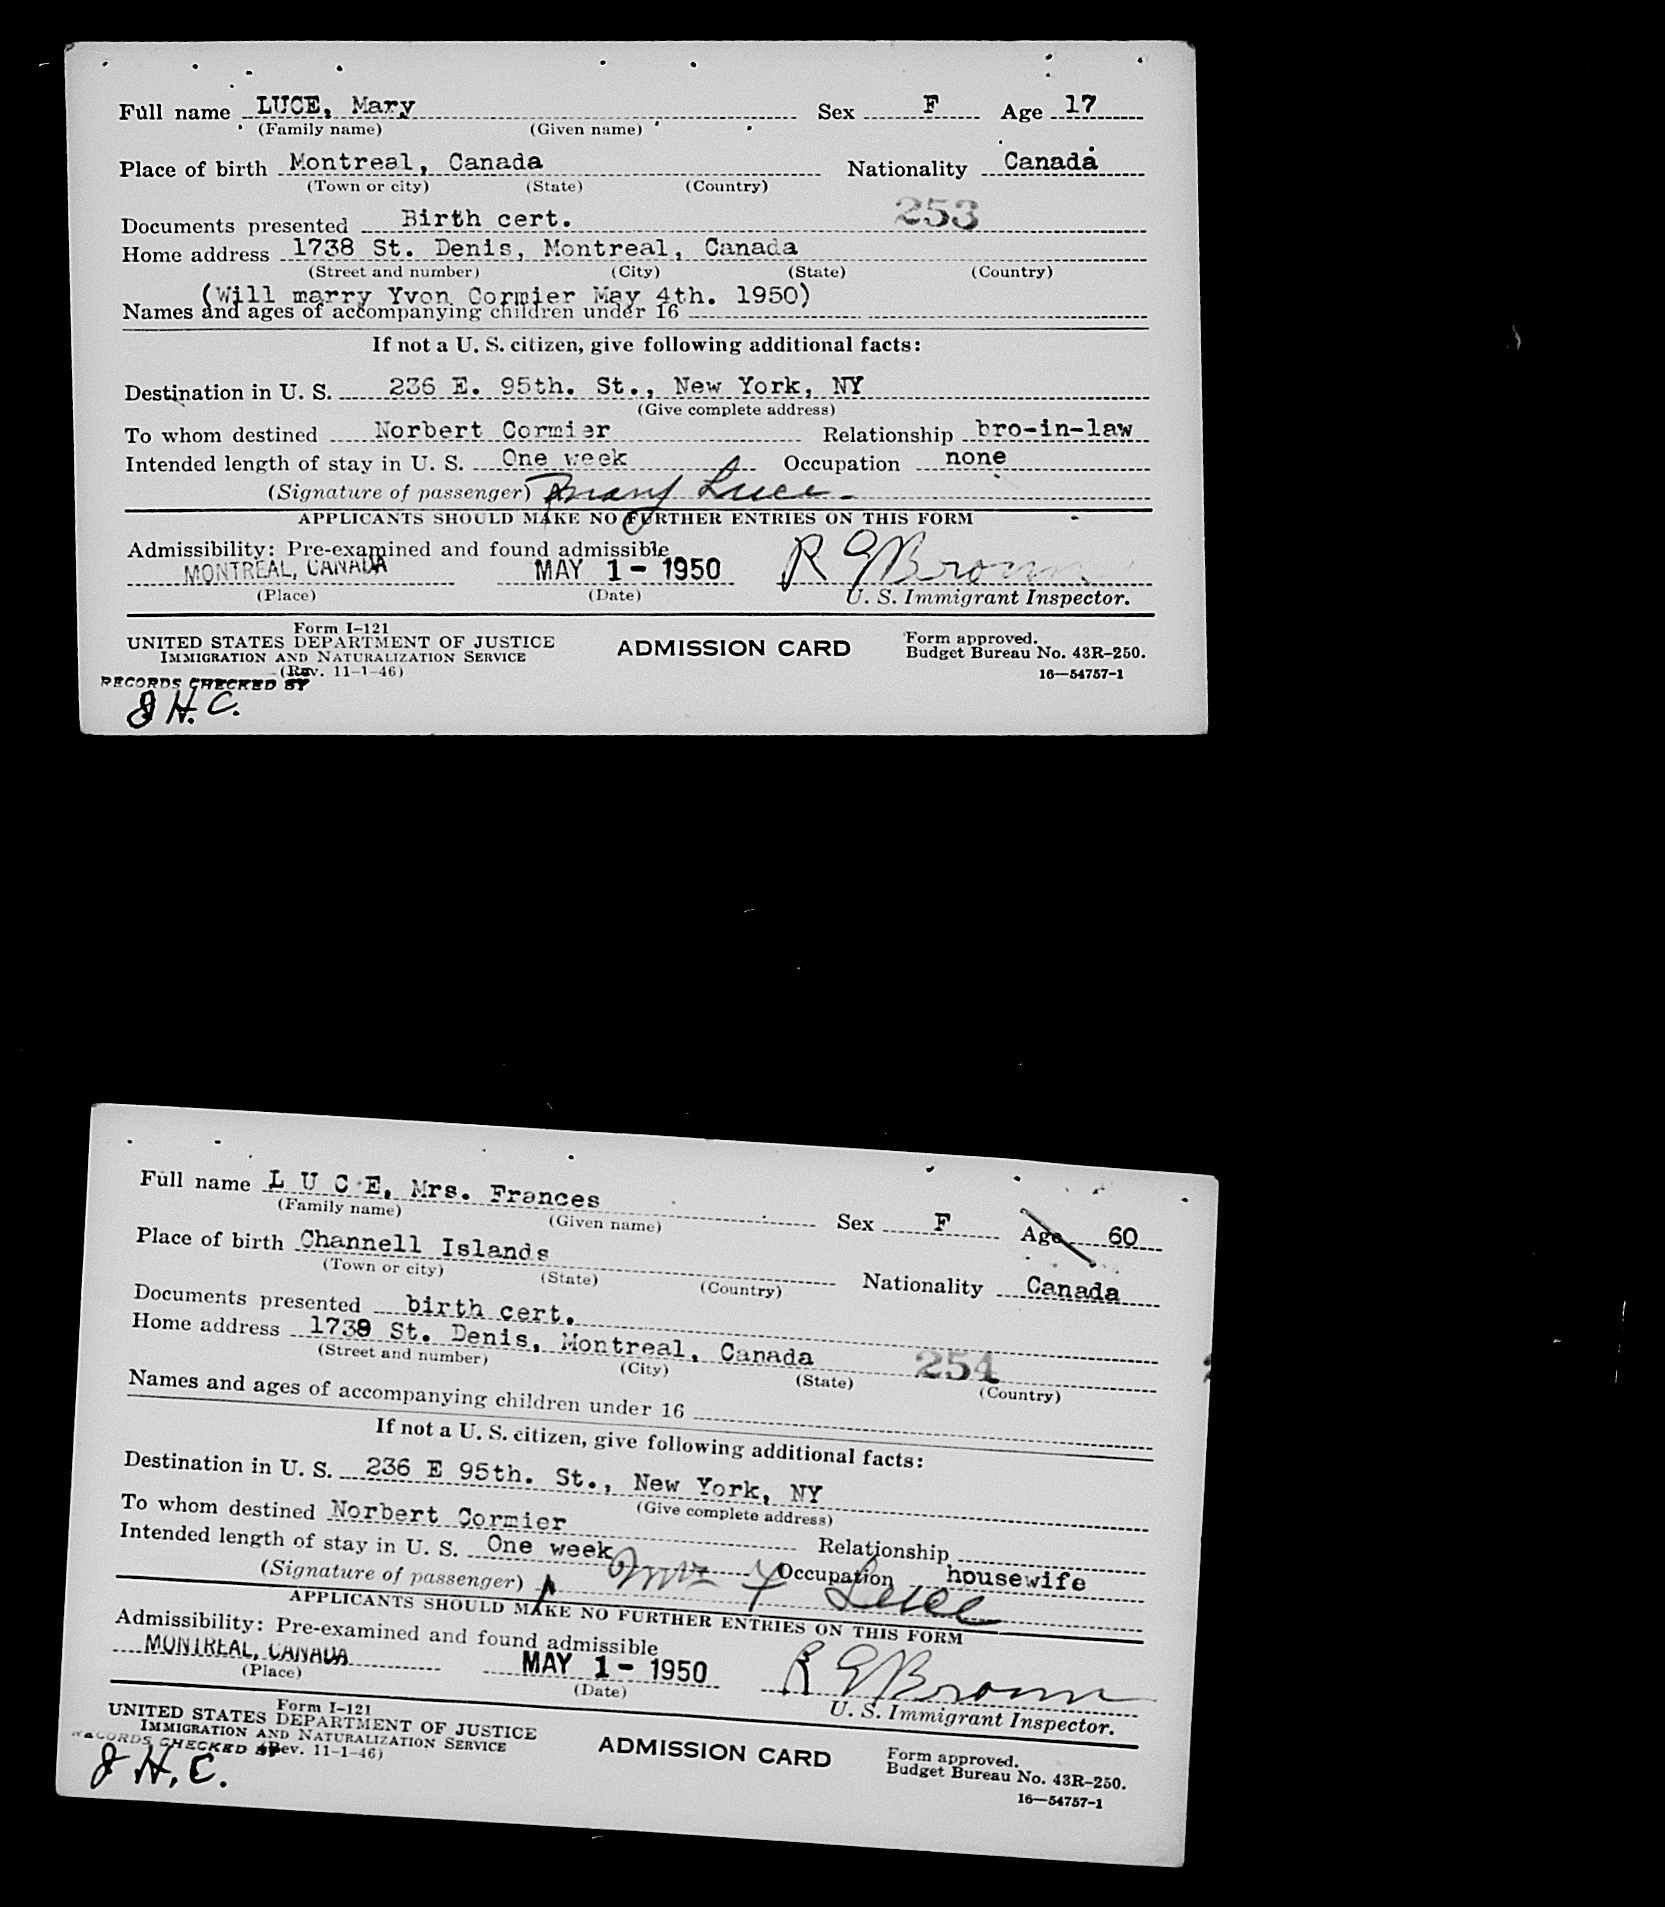 Full name LUCE, Mary Sex F Age 17
(Family name) (Given name)
Place of birth Montreal, Canada Nationality Canada
(Town or city) (State) (Country)
Documents presented Birth cert. 253
Home address 1738 St. Denis, Montreal, Canada
(Street and number) (City) (State) (Country)
(Will marry Yvon Cormier May 4th. 1950)
Names and ages of accompanying children under 16
If not a U. S. citizen, give following additional facts:
Destination in U. S. 236 E. 95th. St., New York, NY
(Give complete address)
To whom destined Norbert Cormier Relationship bro-in-law
Intended length of stay in U. S. One week Occupation none
(Signature of passenger) Mary Luce
APPLICANTS SHOULD MAKE NO FURTHER ENTRIES ON THIS FORM
Admissibility: Pre-examined and found admissible
MONTREAL, CANADA MAY 1 - 1950 R G Brown
(Place) (Date) U. S. Immigrant Inspector.
Form I-121
UNITED STATES DEPARTMENT OF JUSTICE
IMMIGRATION AND NATURALIZATION SERVICE
(Rev. 11-1-46)
ADMISSION CARD
Form approved.
Budget Bureau No. 43R-250.
16—54757-1
RECORDS CHECKED BY
J H. C.
Full name L U C E, Mrs. Frances Sex F Age 60
(Family name) (Given name)
Place of birth Channell Islands Nationality Canada
(Town or city) (State) (Country)
Documents presented birth cert.
Home address 1738 St. Denis, Montreal, Canada 254
(Street and number) (City) (State) (Country)
Names and ages of accompanying children under 16
If not a U. S. citizen, give following additional facts:
Destination in U. S. 236 E 95th. St., New York, NY
(Give complete address)
To whom destined Norbert Cormier Relationship
Intended length of stay in U. S. One week Occupation housewife
(Signature of passenger) Mrs F Luce
APPLICANTS SHOULD MAKE NO FURTHER ENTRIES ON THIS FORM
Admissibility: Pre-examined and found admissible
MONTREAL, CANADA MAY 1 - 1950 R G Brown
(Place) (Date) U. S. Immigrant Inspector.
Form I-121
UNITED STATES DEPARTMENT OF JUSTICE
IMMIGRATION AND NATURALIZATION SERVICE
(Rev. 11-1-46)
ADMISSION CARD
Form approved.
Budget Bureau No. 43R-250.
16—54757-1
RECORDS CHECKED BY
J H. C.